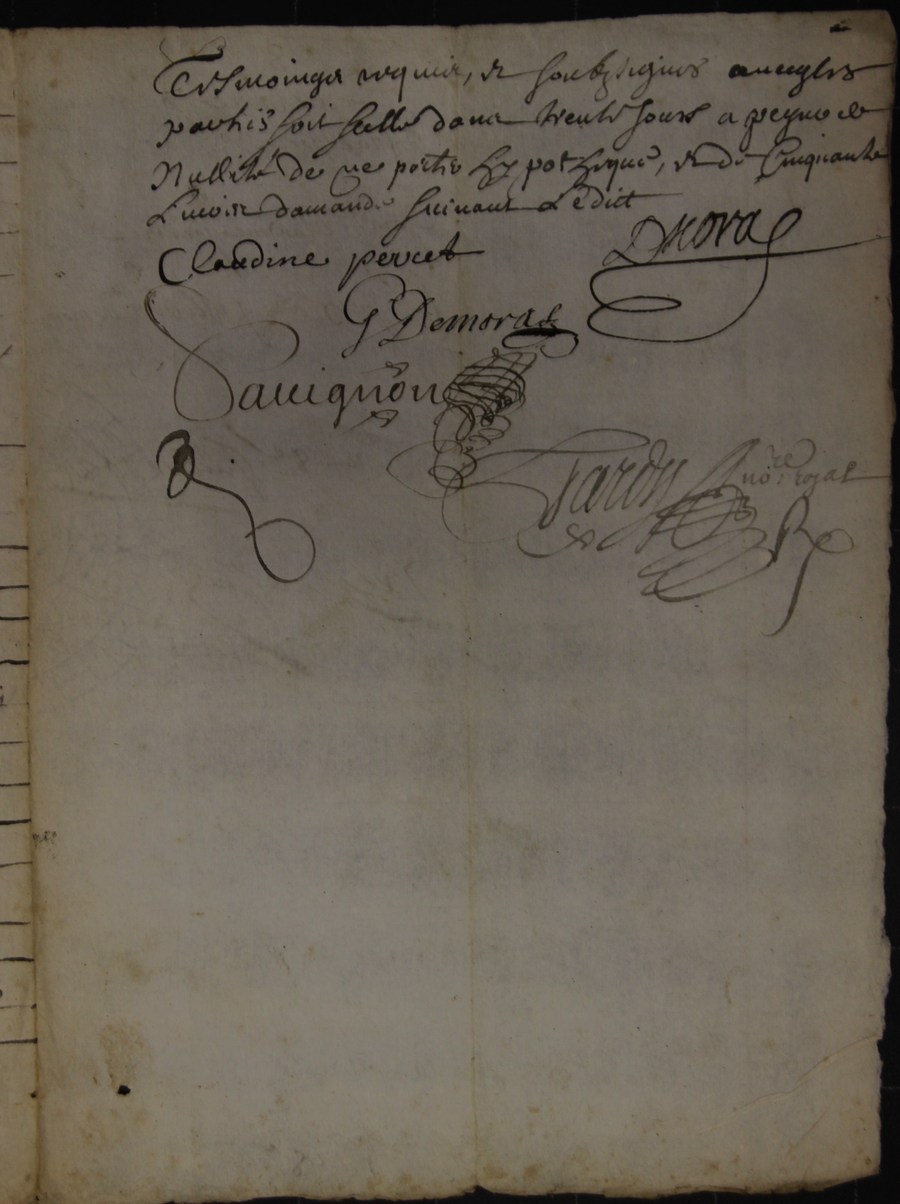 Tesmoings requis, & soubzsignes auecq les
partis soit sellé dans trente Jours a peyne de
Nullité de ne porter hypotheque, & de Cinquante
Liures damande suiuant L'edict
Claudine percet
G Demoras
Sauuignon
Tardy no.re royal